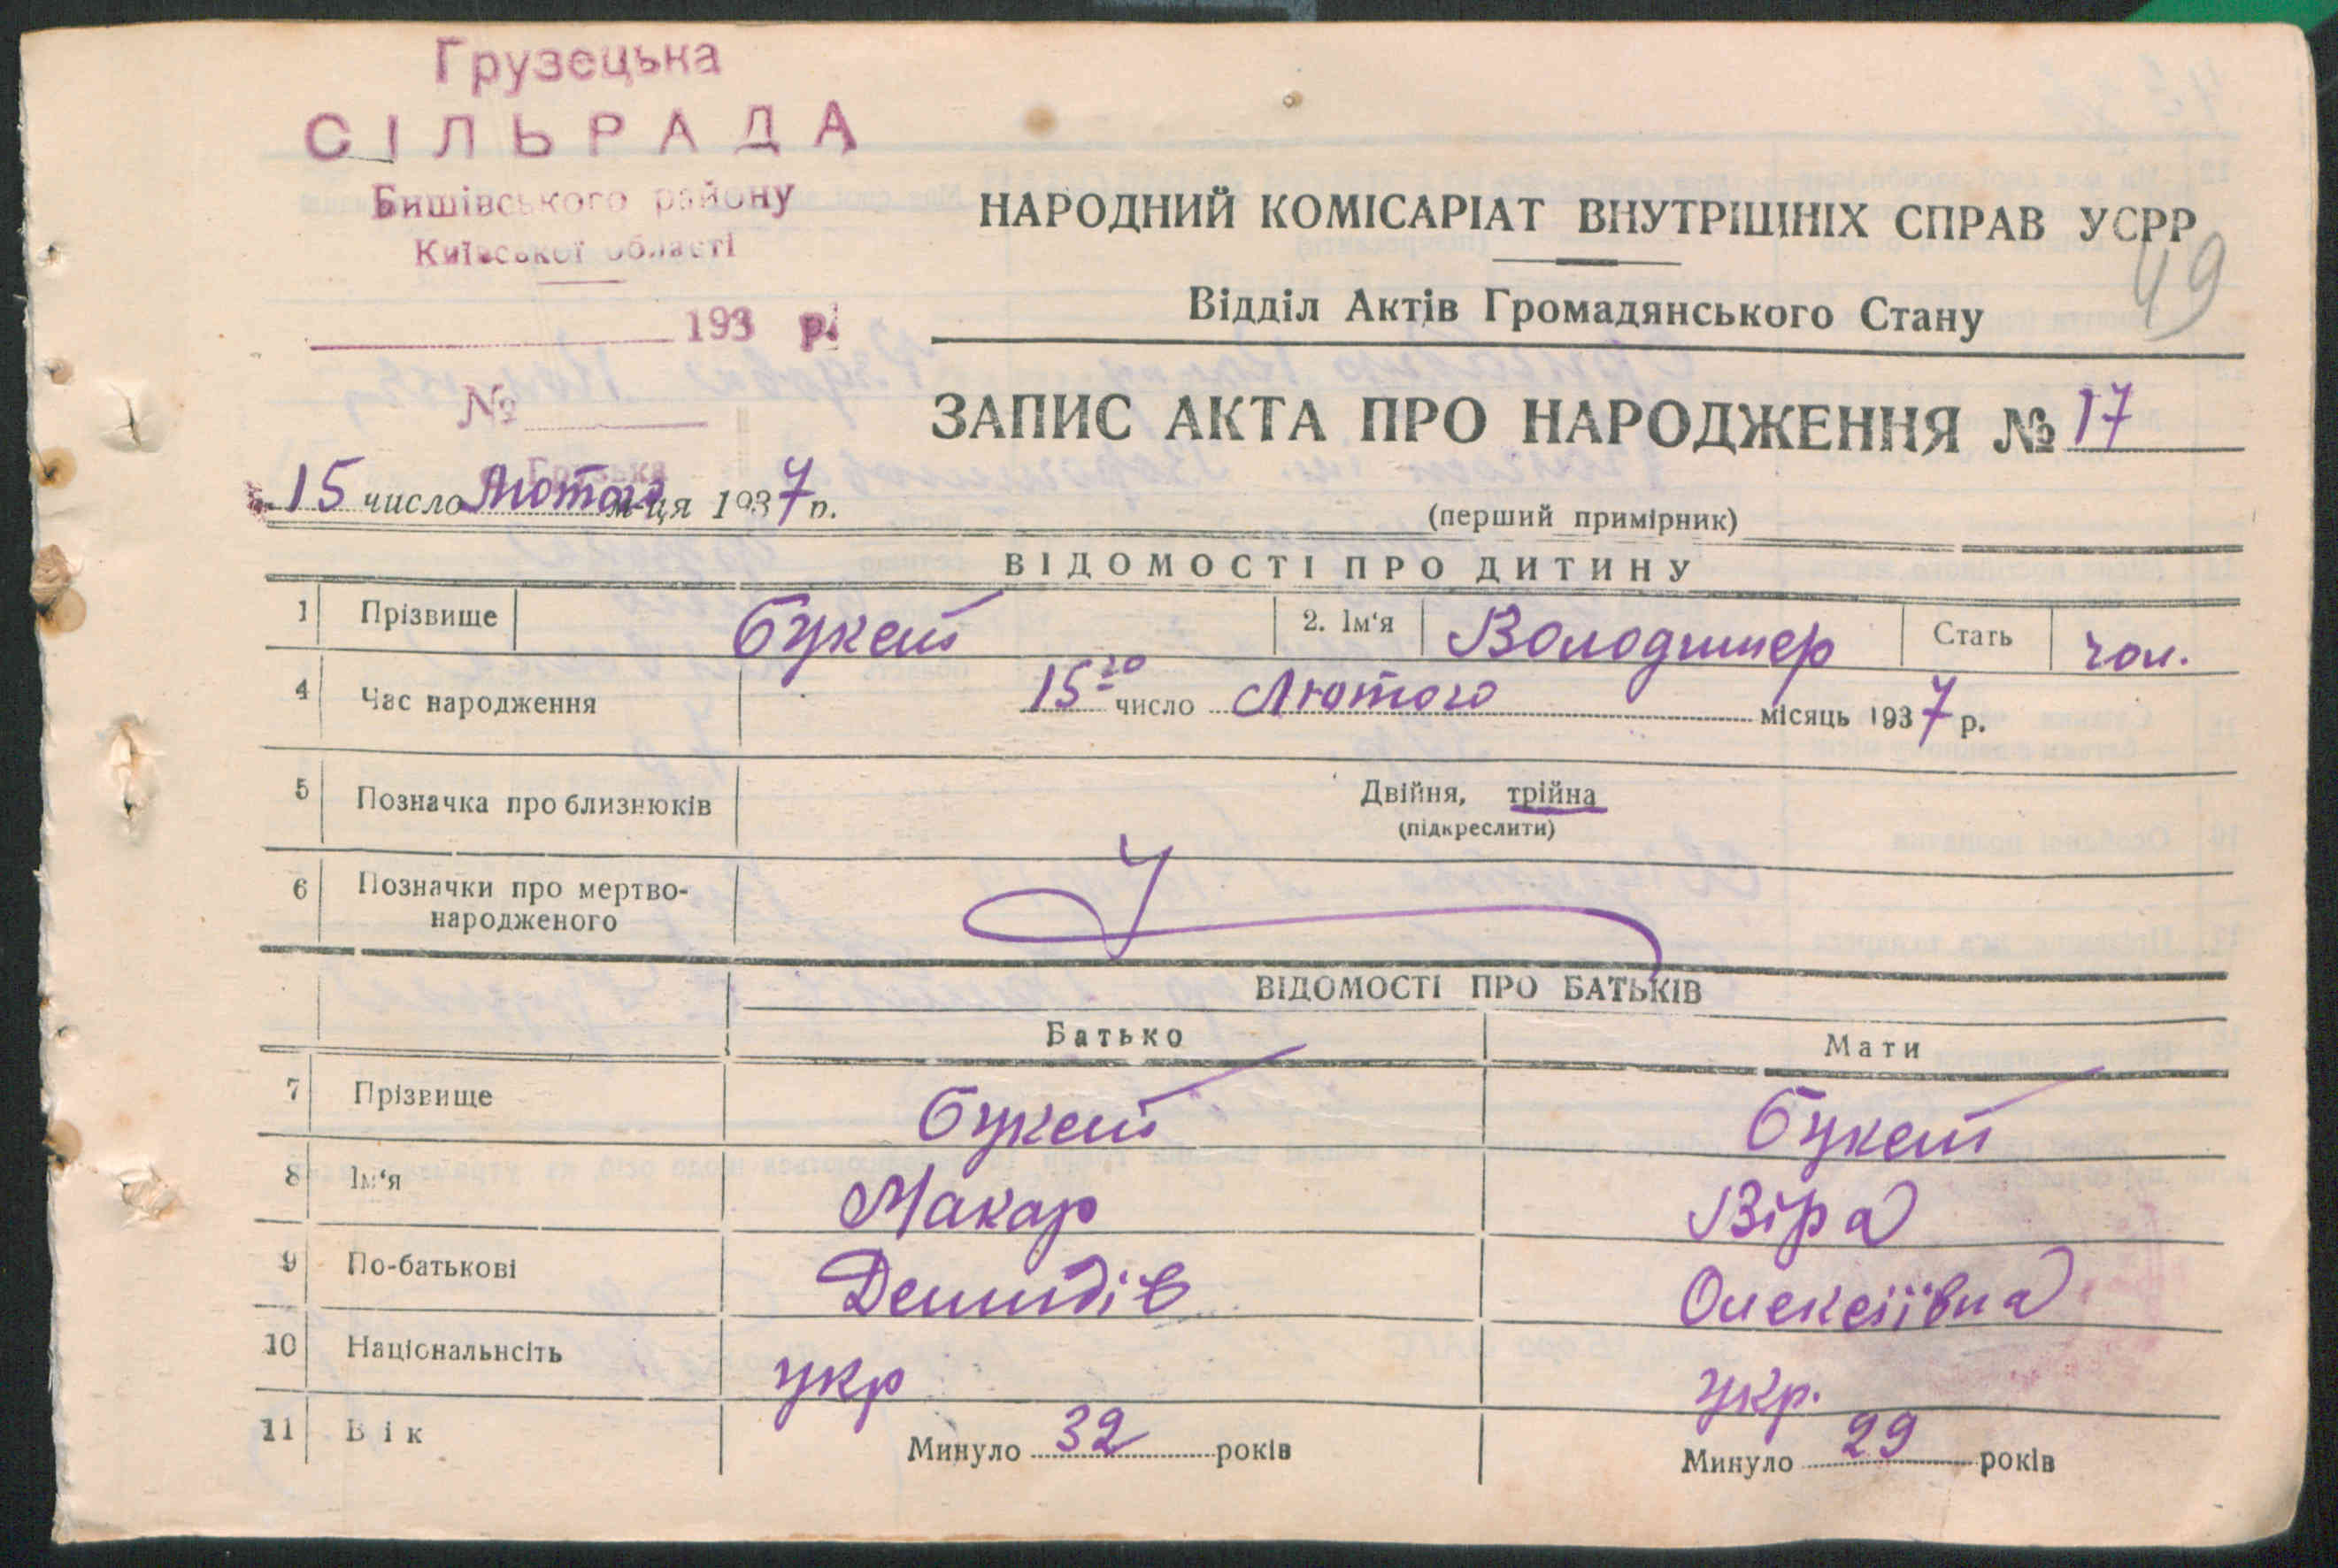 Грузецька
СІЛЬРАДА
Бишівського району
Київської області
193 р.
№
НАРОДНИЙ КОМІСАРІАТ ВНУТРІШНІХ СПРАВ УСРР
49
Відділ Актів Громадянського Стану
ЗАПИС АКТА ПРО НАРОДЖЕННЯ № 17
15 число Лютого м-ця 1937 р.
(перший примірник)
ВІДОМОСТІ ПРО ДИТИНУ
1 Прізвище Букет 2. Ім'я Володимер Стать чол.
4 Час народження 15го число Лютого місяць 1937 р.
5 Позначка про близнюків Двійня, трійна
(підкреслити)
6 Позначки про мертво-
народженого
ВІДОМОСТІ ПРО БАТЬКІВ
Батько Мати
7 Прізвище Букет Букет
8 Ім'я Макар Віра
9 По-батькові Демидів Олексіївна
10 Національнсіть укр укр.
11 Вік Минуло 32 років Минуло 29 років